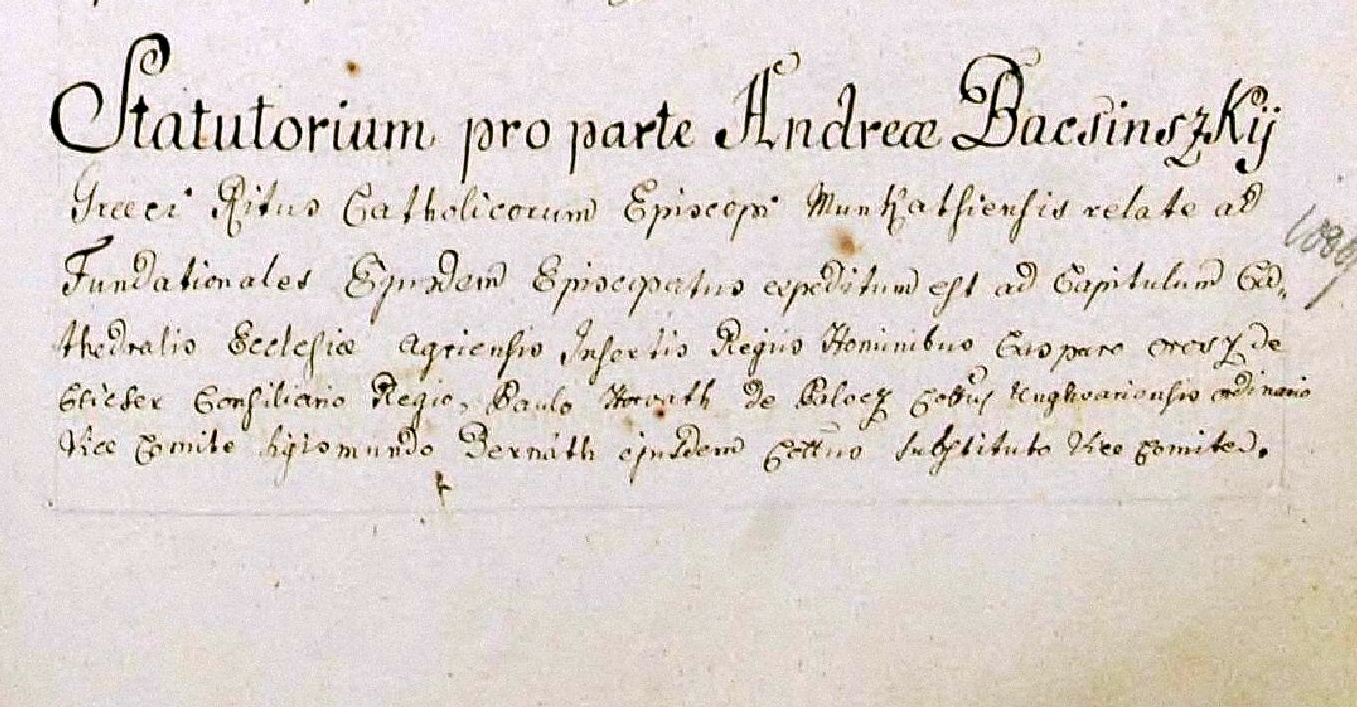 Statutorium pro parte Andreæ Bacsinszkij
Græci Ritus Catholicorum Episcopi Munkatsiensis relate ad
Fundationales Ejusdem Episcopatus expeditum est ad Capitulum Ca-
thedralis Ecclesiæ Agriensis Insertis Regiis Hominibus Gasparo Orosz de
Consiliario Regio, Paulo Horvath de Palocz Cottus Unghvariensis ordinario
Vice Comite Sigismundo Bernáth ejusdem Cottus substituto Vice Comite.